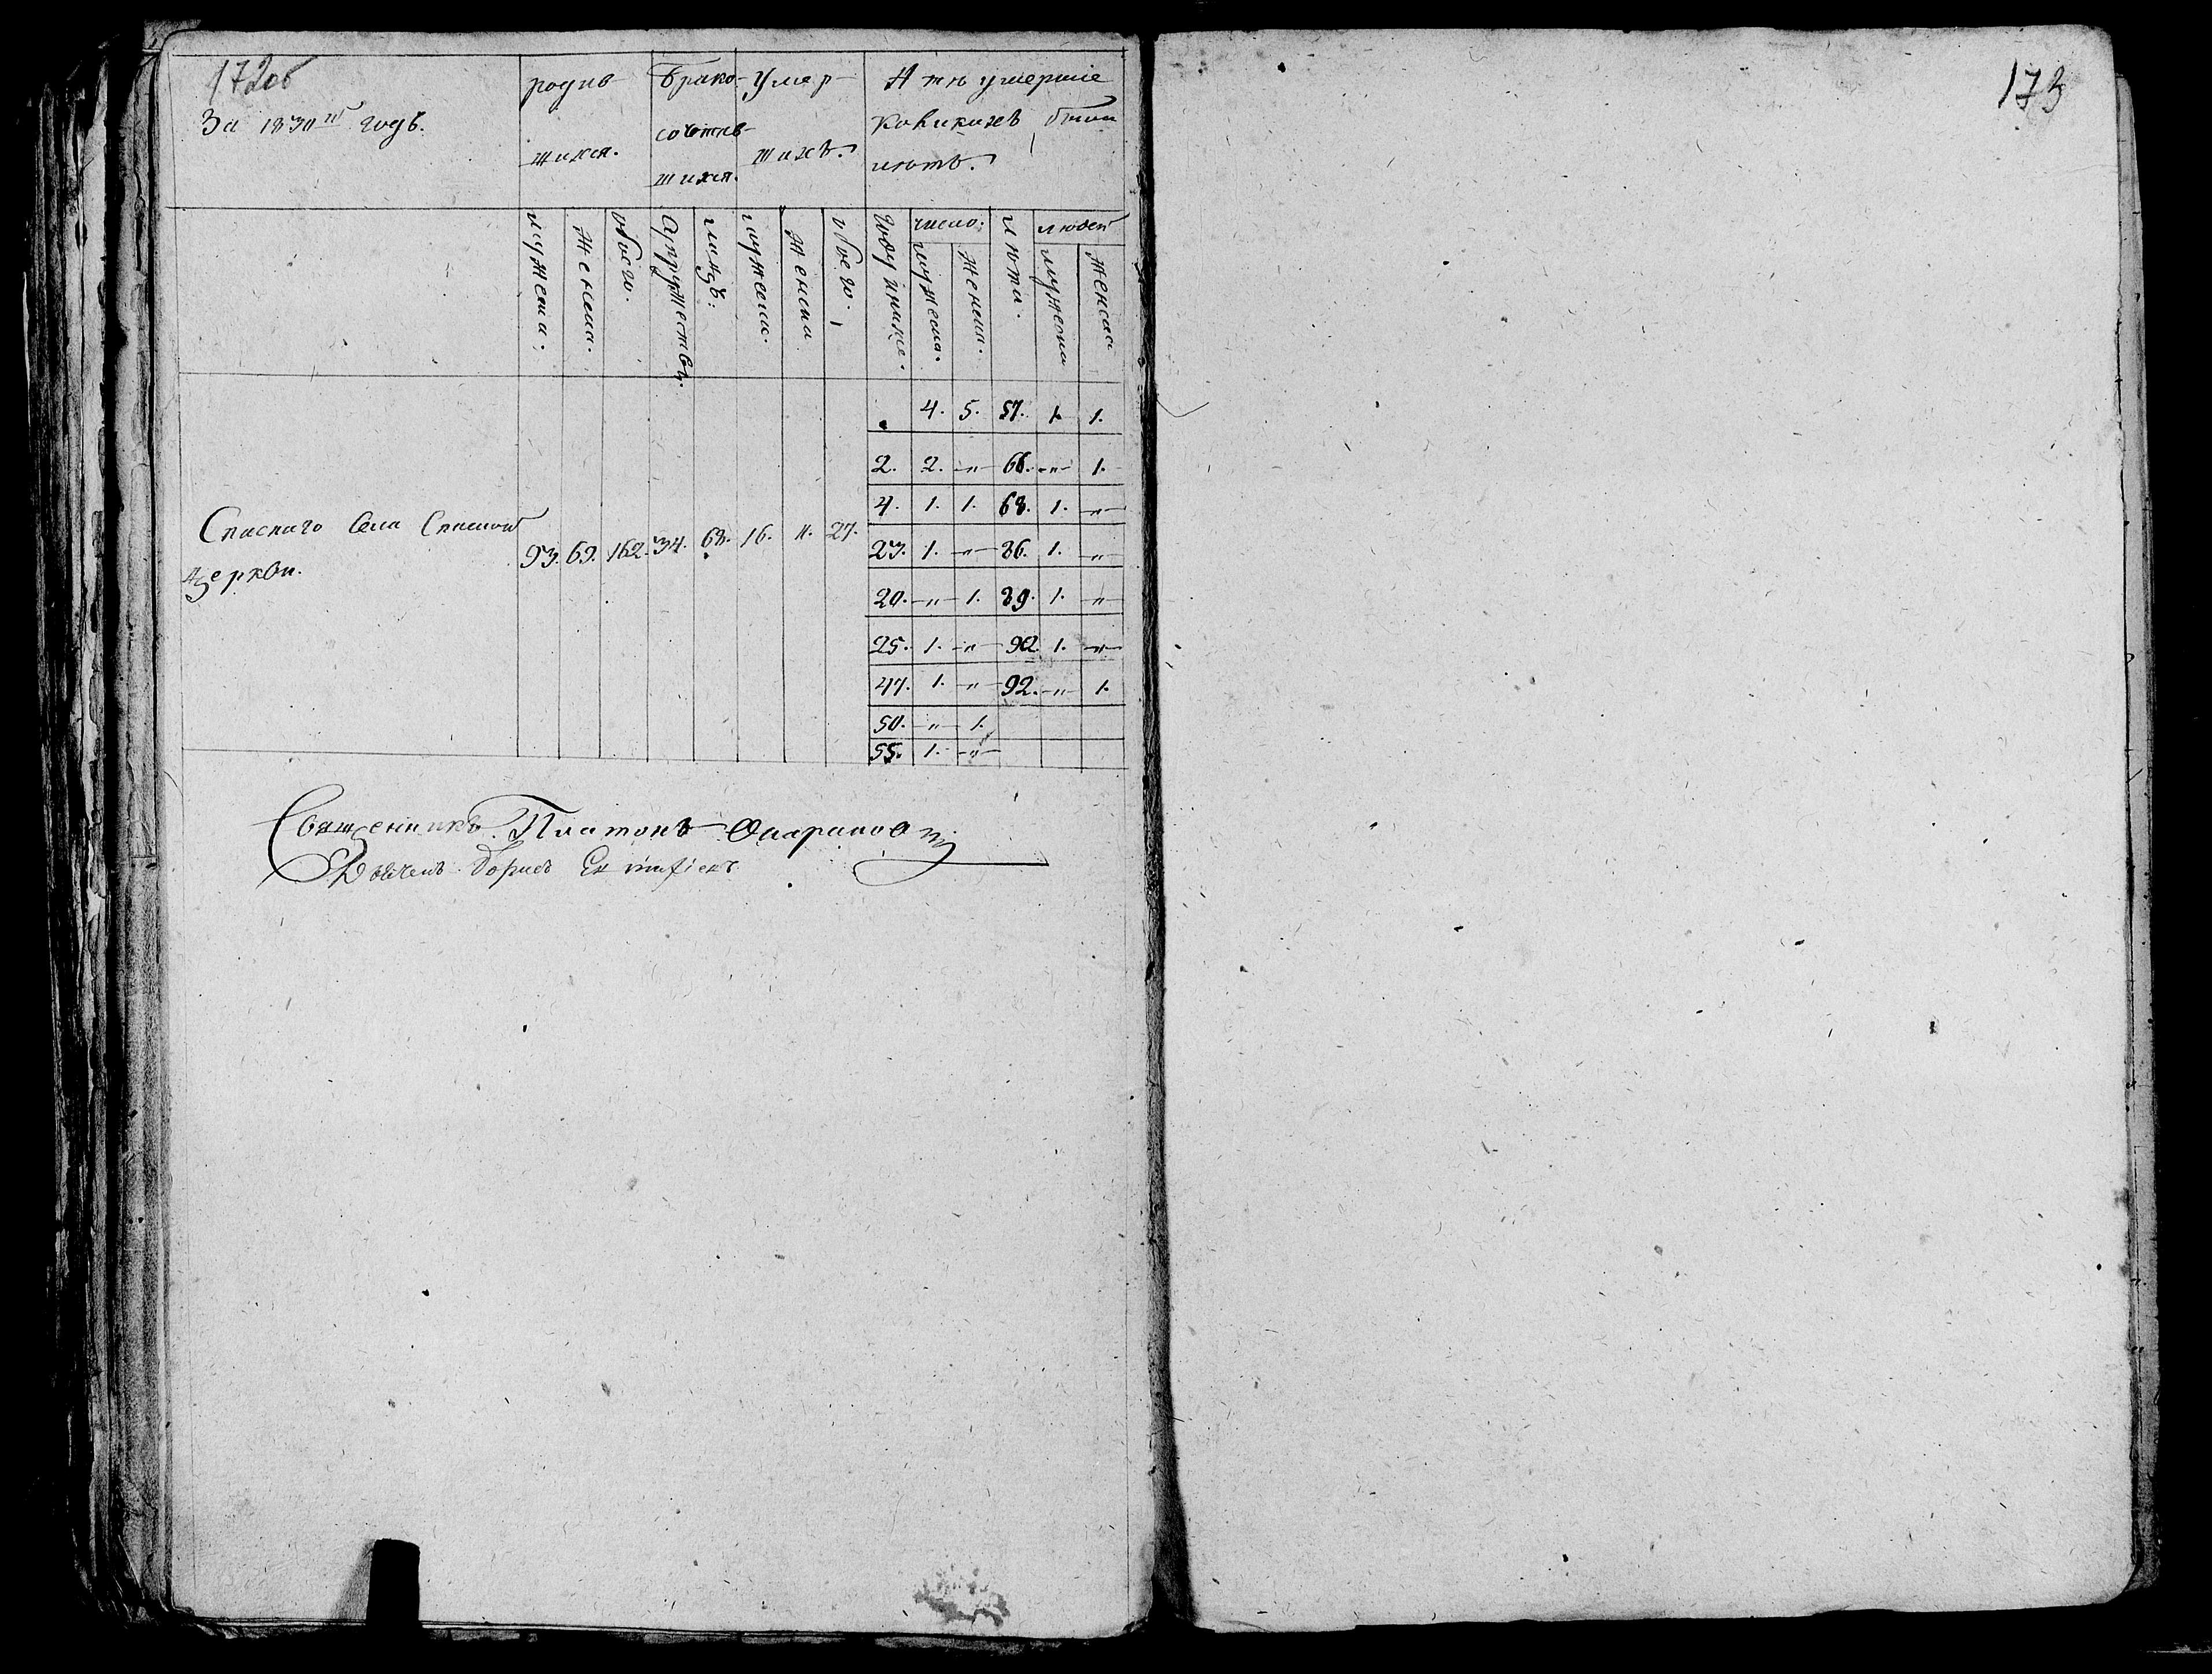 172об
За 1830й годъ.
родив
шихся.
Брако
сочетав-
шихся.
Умер-
шихъ.
А тѣ умершіе
каковыхъ были
лѣтъ.
мужеска.
женска.
обоего.
супружество.
лицъ.
мужеска.
женска
обоего.
году и ниже.
число:
мужеска.
женска.
лѣта.
людей
мужеска
женска
4. 5. 57. 1. 1.
2. 2. -„- 66. -„- 1.
4. 1. 1. 68. 1. -„-
Спаскаго Села Спаской
церкви.
93. 69. 162. 34. 68. 16. 11. 27.
23. 1. -„- 86. 1. -„-
20. -„- 1. 89. 1. -„-
25. 1. -„- 90. 1. -„-
47. 1. -„- 92. -„- 1.
50. -„- 1.
55. 1. -„-
Священникъ Платонъ
Дьяконъ Борисъ
173